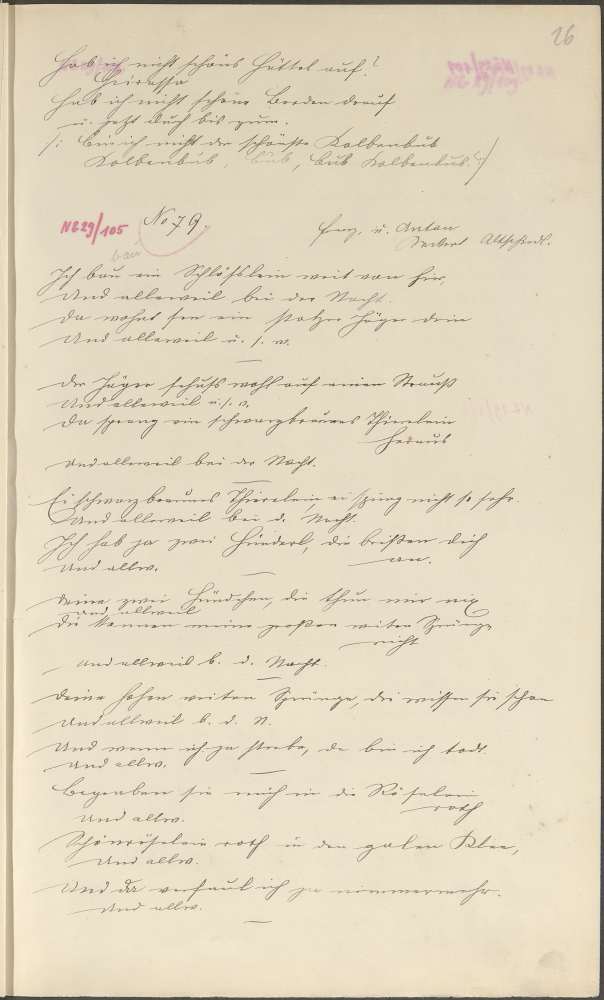 26
Hab ich nicht schöns Hüttel auf?
Hab ich nicht schöne Borden drauf
u. jetzt duch bis zum.
/: bin ich nicht der schönste Kolbenbub
Kolbenbub, bub, bub Kolbenbub. :/
N629/105 No 79. Franz u. Anton
bau
Ich bau ein Schlößlein weit von hier,
Und alleweil bei der Nacht.
Da wohnt ein stolzer Jäger drin
Und alleweil u. s. w.
Der Jäger schuß wohl auf einen Strauß
Und alleweil u. s. w.
Da sprang ein schwarzbraunes Thierelein
heraus
und alleweil bei der Nacht.
Ei schwarzbraunes Thierelein, ei spring nicht so sehr
Und alleweil bei d. Nacht.
Ich hab ja zwei Hünderl, die beißen dich
an.
Und allw.
Deine zwei Hündchen, die thun mir nix
und allweil
Die kennen meine großen weiten Sprünge
nicht
und allweil b. d. Nacht.
Deine hohen weiten Sprünge, die wissen sie schon
Und allweil b. d. N.
Und wenn ich ja sterbe, da bin ich todt.
Und allw.
Begraben sie mich in die Röselein
roth
Und allw.
Schönröselein roth in den Klee,
Und allw.
Und da verfaul ich ja nimmermehr.
Und allw.